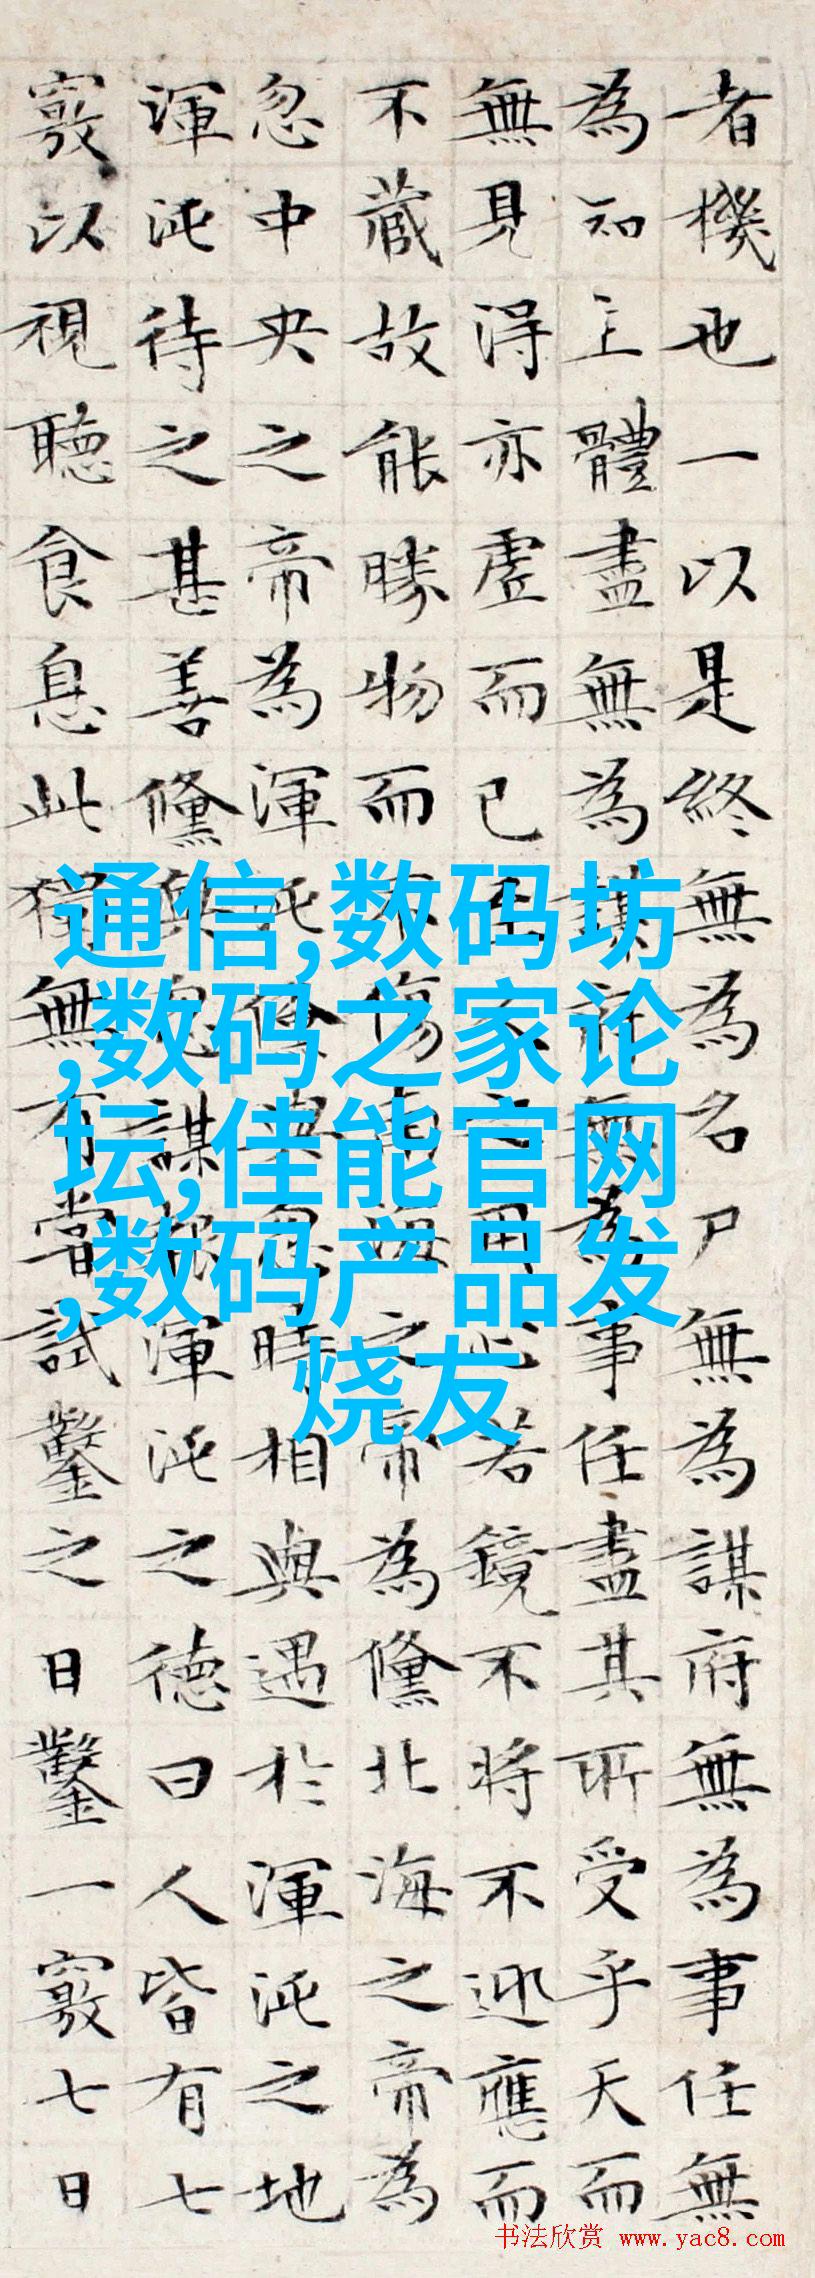 者機也一以是終無為名尸無為謀府無為事任無
為知主體盡無為謀府無為事任盡其所受乎天而
無見得亦虛而已至人之用心若鏡不將不迎應而
不藏故能勝物而不傷南海之帝為儵北海之帝為
忽中央之帝為渾沌儵與忽時相與遇於渾沌之地
渾沌待之甚善儵與忽謀報渾沌之德曰人皆有七
竅以視聽食息此獨無有嘗試鑿之日鑿一竅七日
通信,数码坊
,数码之家论
坛,佳能官网
,数码产品发
烧友
书法欣赏 www.yac8.com